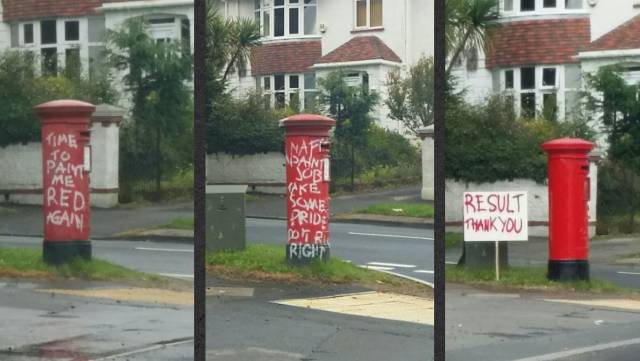 TIME
TO
PAINT
ME
RED
AGAIN
NAFF
PAINT
JOB
TAKE
SOME
PRIDE
DO IT
RIGHT
RESULT
THANK YOU